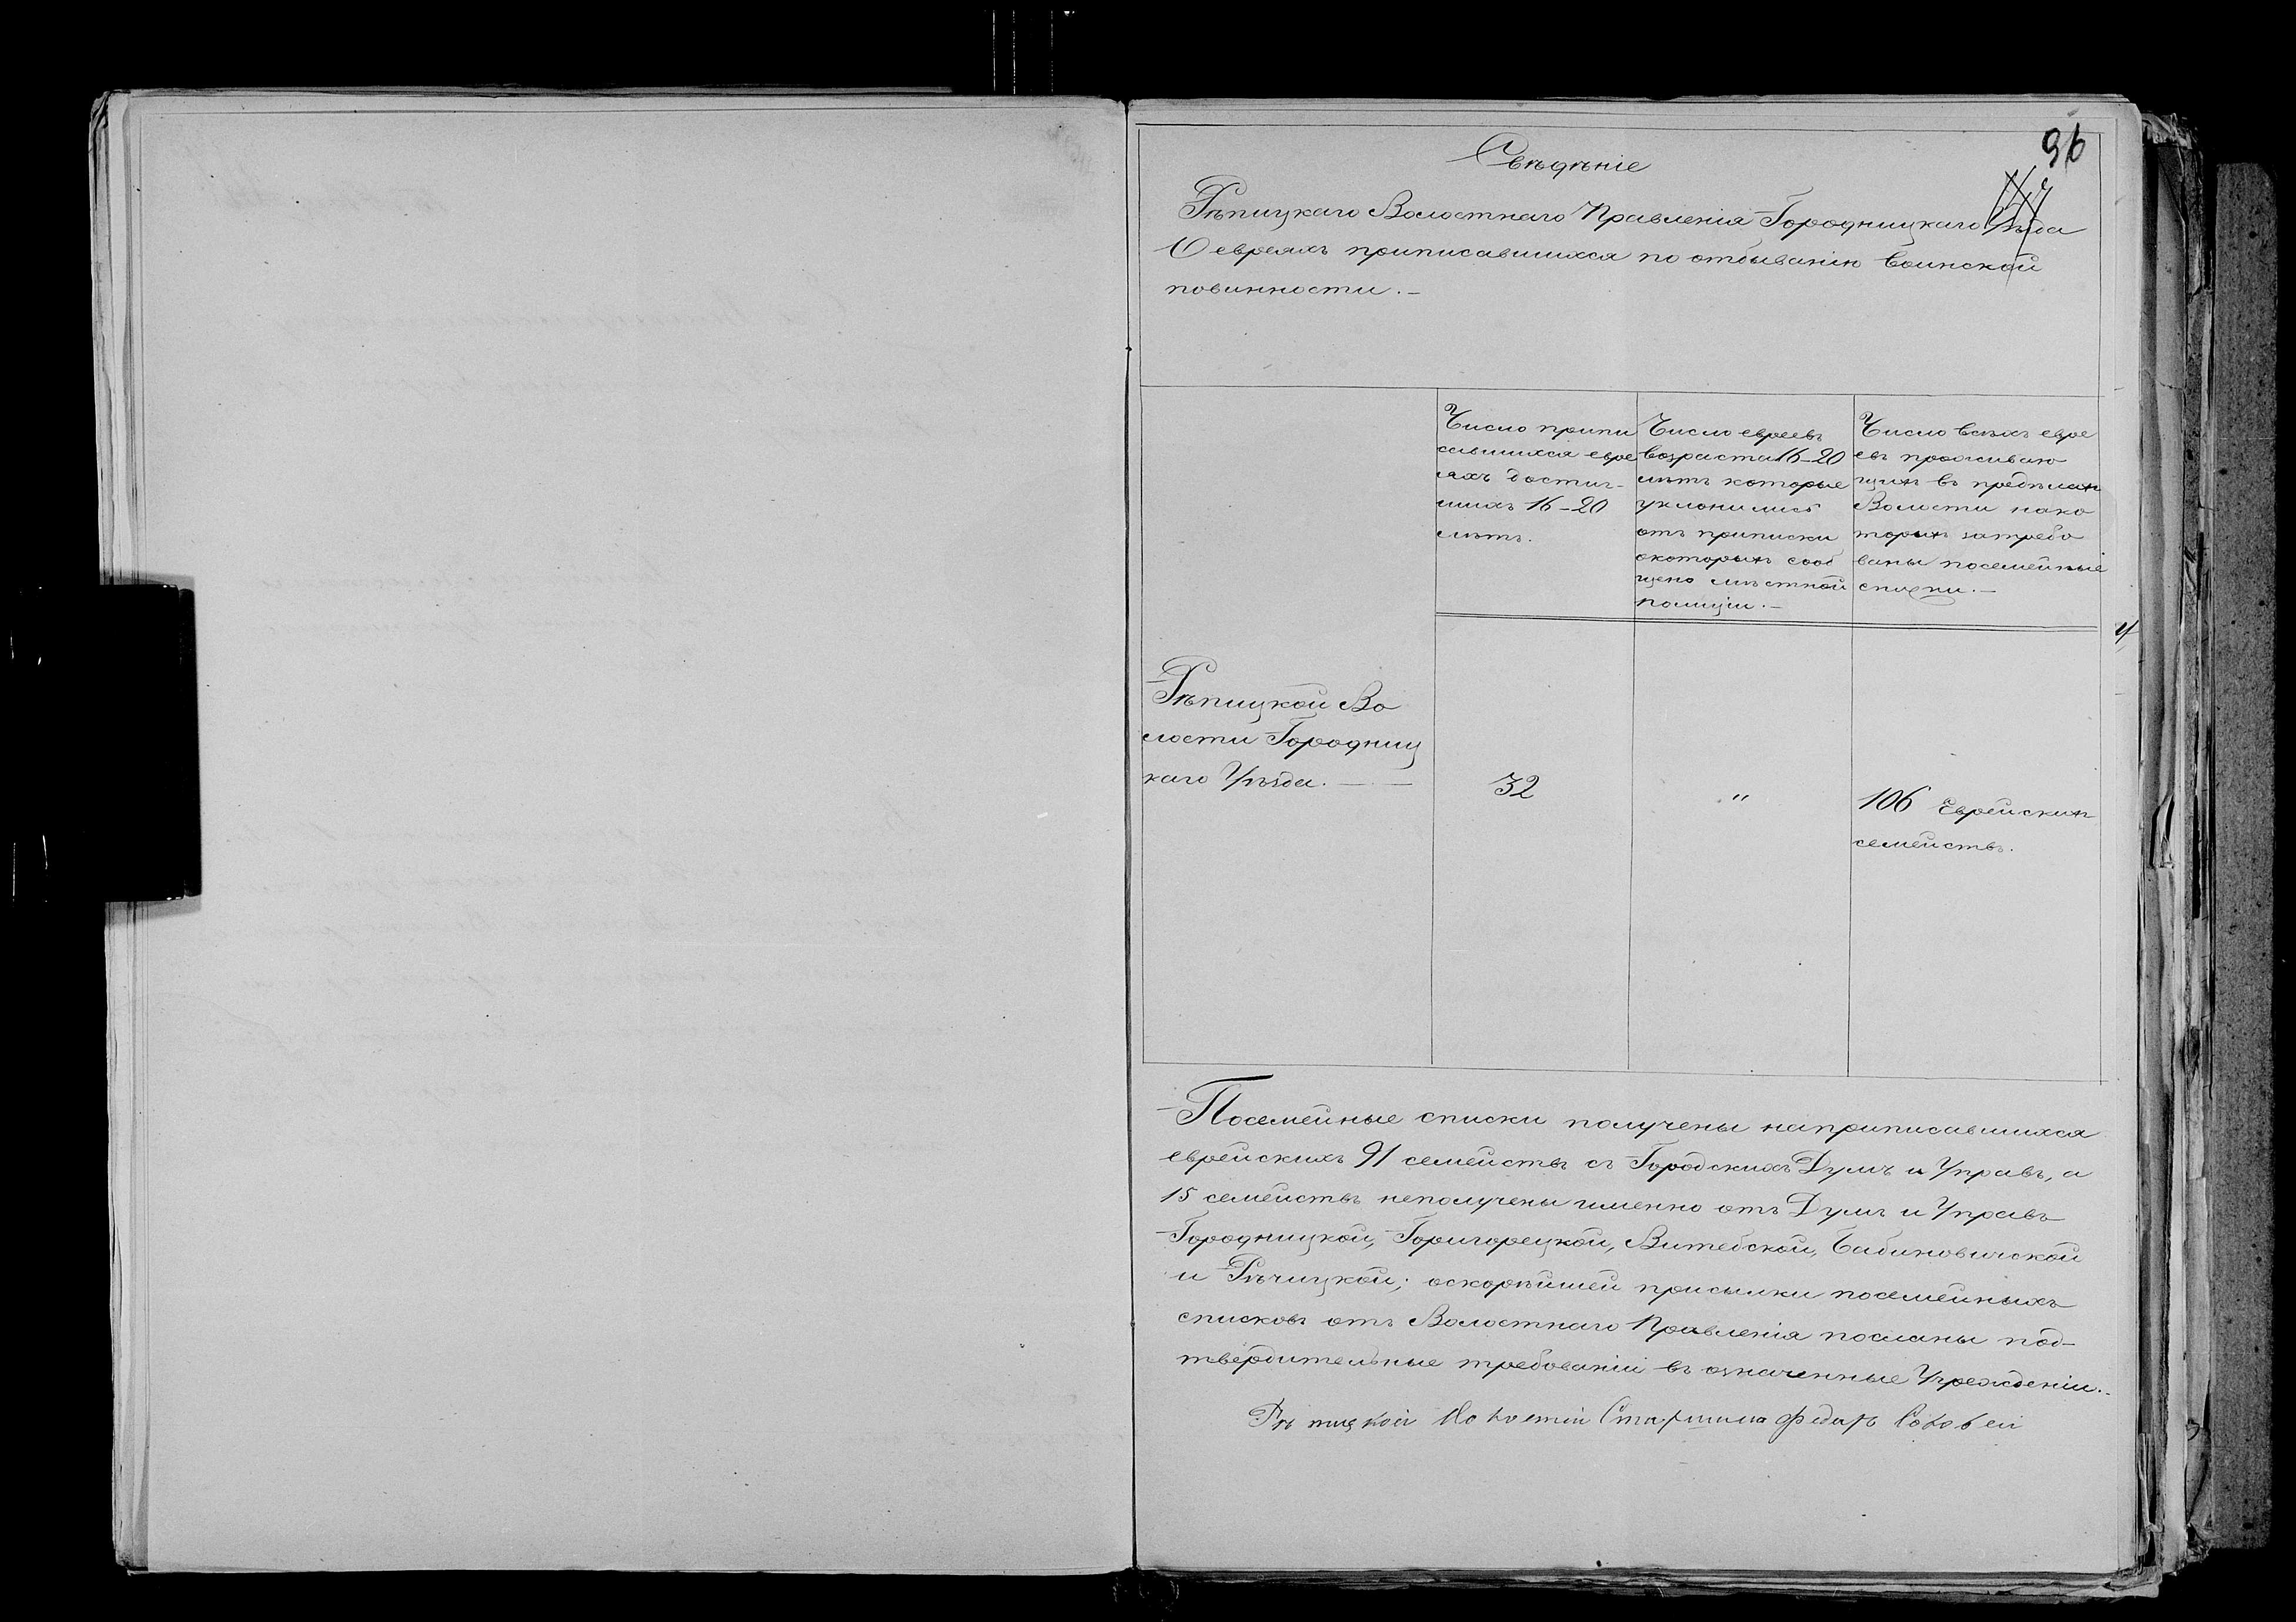 96
Свѣдѣніе
Рѣпицкаго Волостнаго Правленія Городницкаго Уѣзда
О евреяхъ приписавшихся по отбыванію воинской
повинности.—
Число припи
савшихся евре
яхъ достиг-
шихъ 16-20
лѣтъ.
Число евреевъ
возраста 16-20
лѣтъ которые
уклонились
отъ приписки
окоторыхъ сооб
щено мѣстной
полиціи.—
Число всѣхъ евре
евъ проживаю
щихъ въ предѣлахъ
Волости нако
торыхъ затребо
ваны посемейные
списки.—
Рѣпицкой Во
лости Городниц
каго Уѣзда. — —
32
"
106 Еврейскихъ
семействъ.
Посемейные списки получены наприписавшихся
еврейскихъ 91 семействъ съ Городскихъ Думъ и Управъ, а
15 семействъ неполучены именно отъ Думъ и Управъ
Городницкой, Горигорецкой, Витебской, Бабиновичской
и Рѣчицкой; оскорѣйшей присылки посемейныхъ
списковъ отъ Волостнаго Правленія посланы под-
твердительные требованіи въ означенные Учрежденіи.—
Рѣпицкой Волостій Старшина Федаръ Соловей